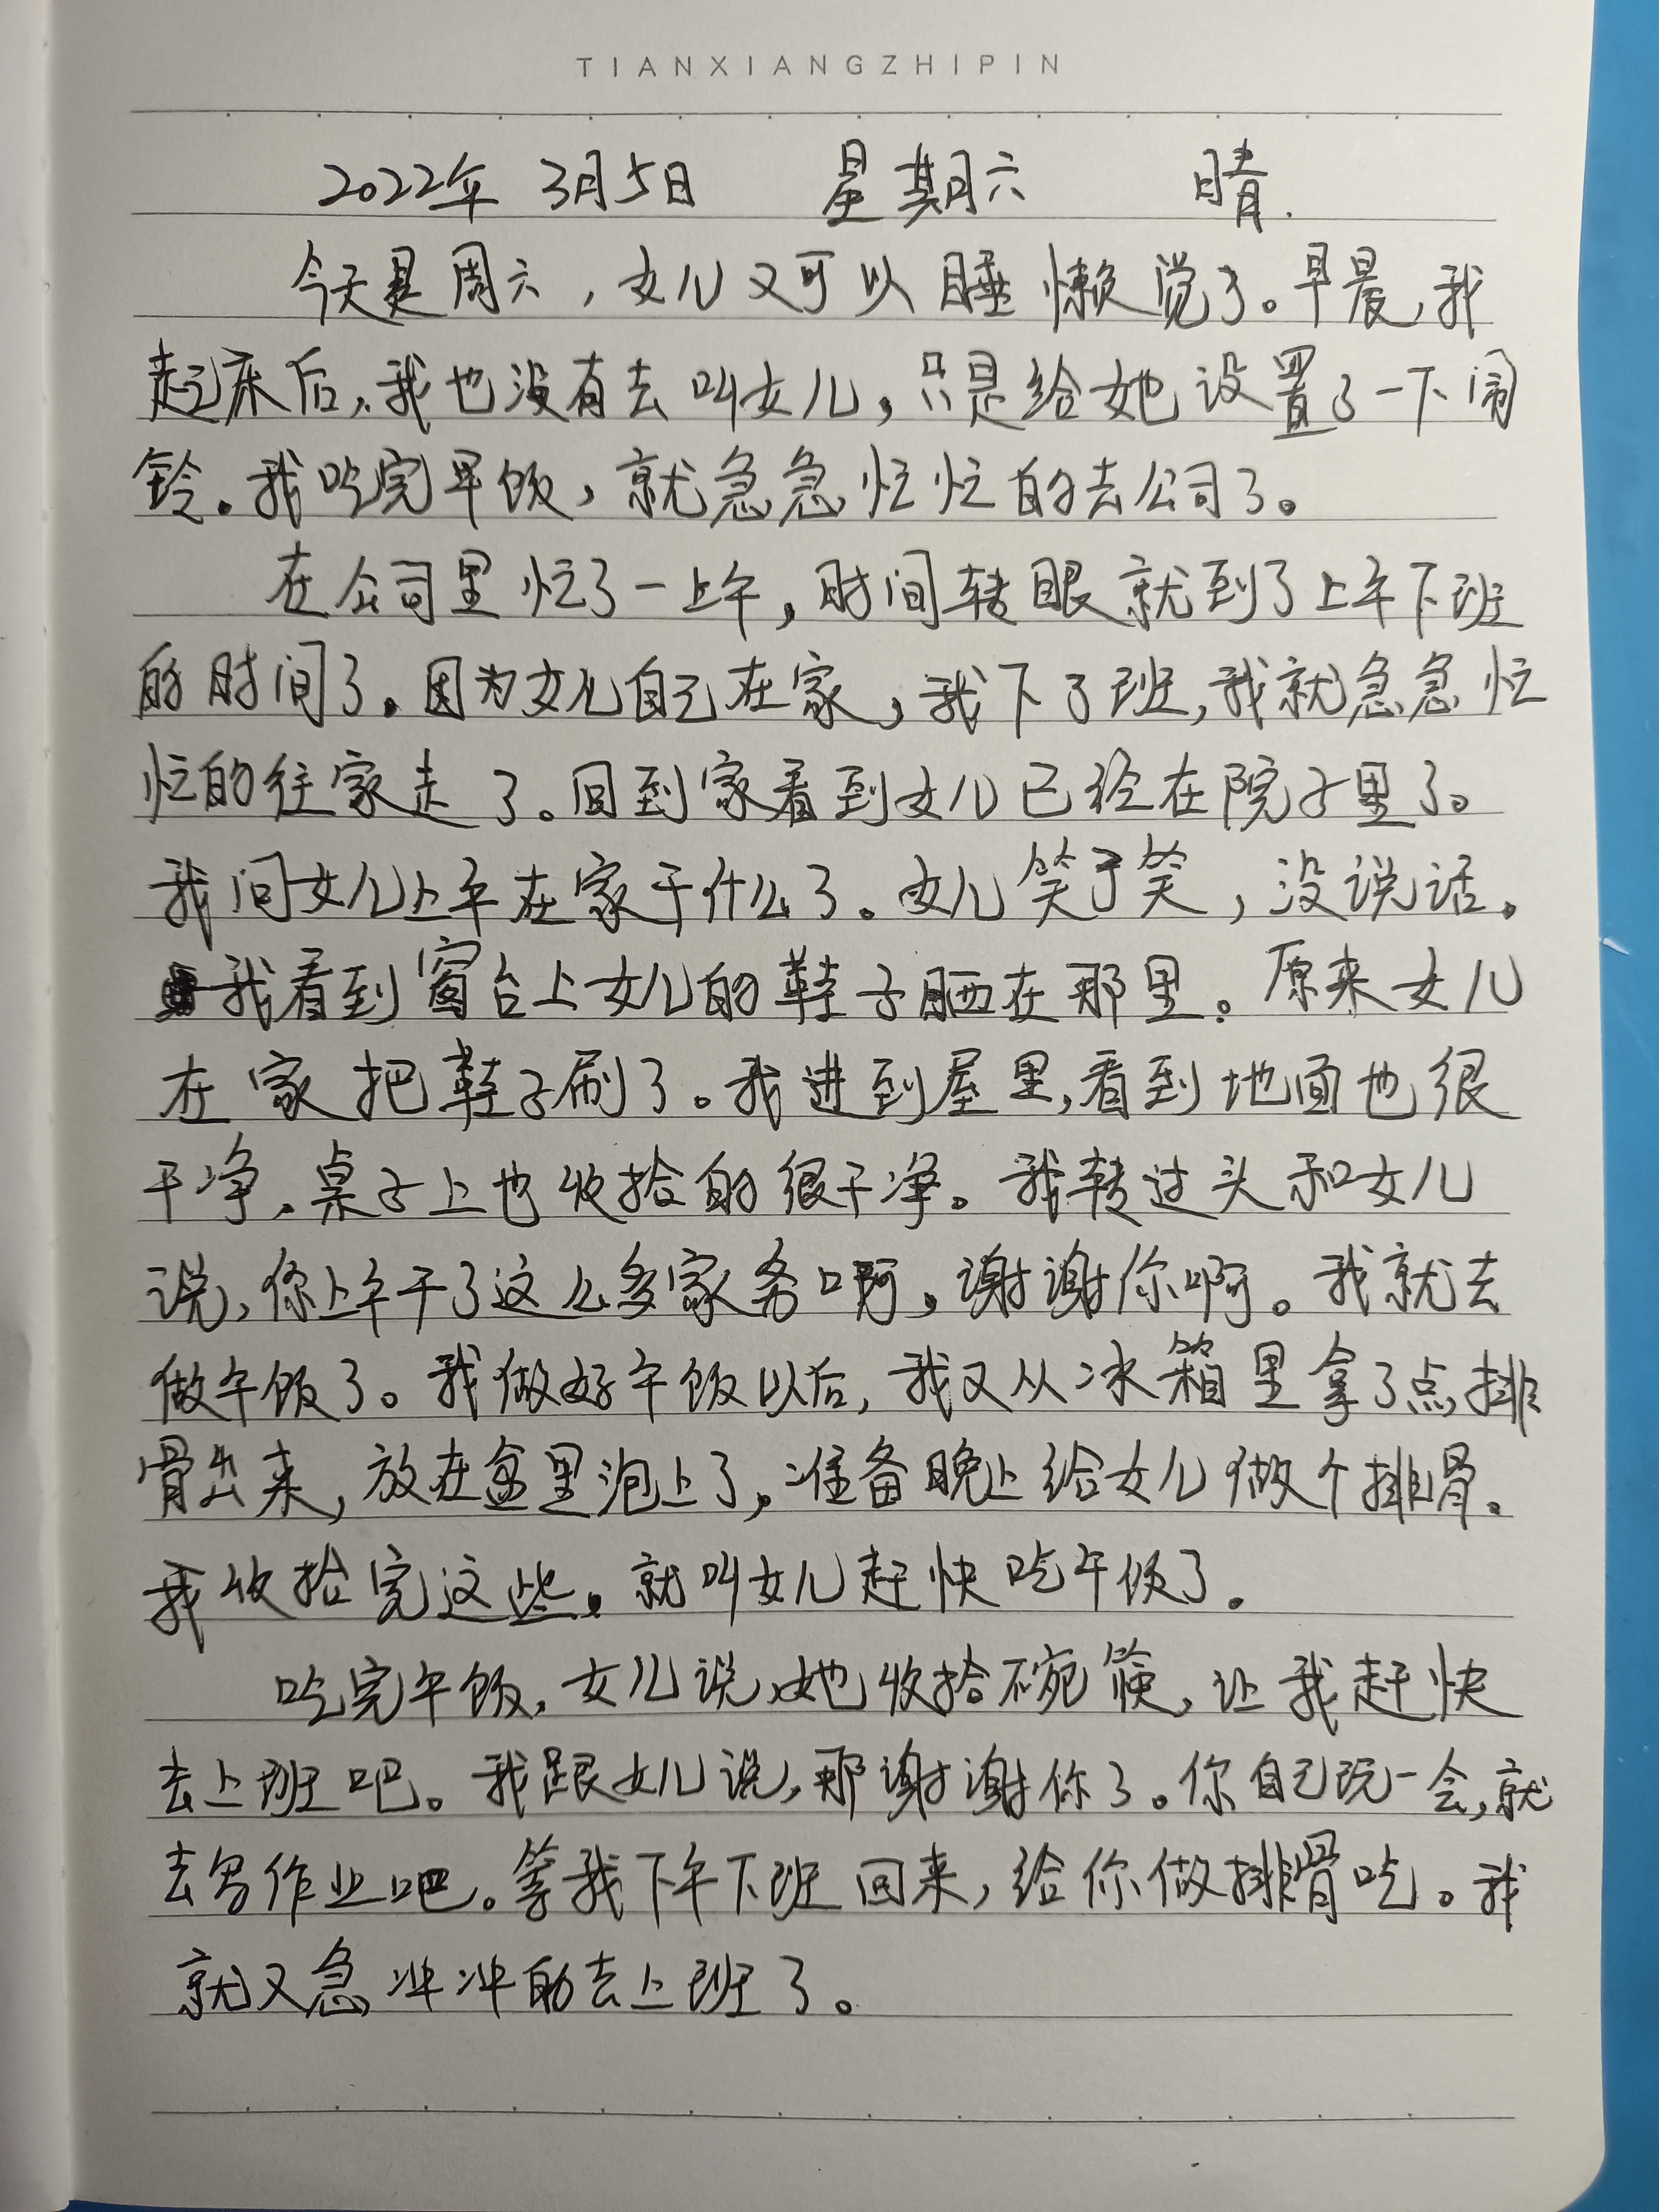 TIANXIANGZHIPIN
2022年 3月5日 星期六 晴.
今天是周六，女儿又可以睡懒觉了。早晨，我
起床后，我也没有去叫女儿，只是给她设置了一下闹
铃。我吃完早饭，就急急忙忙的去公司了。
在公司里忙了一上午，时间转眼就到了上午下班
的时间了。因为女儿自己在家，我下了班，我就急急忙
忙的往家走了。回到家看到女儿已经在院子里了。
我问女儿上午在家干什么了。女儿笑了笑，没说话。
我看到窗台上女儿的鞋子晒在那里。原来女儿
在家把鞋子刷了。我进到屋里，看到地面也很
干净，桌子上也收拾的很干净。我转过头和女儿
说，你上午干了这么多家务啊，谢谢你啊。我就去
做午饭了。我做好午饭以后，我又从冰箱里拿了点排
骨出来，放在盆里泡上了，准备晚上给女儿做个排骨。
我收拾完这些，就叫女儿赶快吃午饭了.
吃完午饭，女儿说，她收拾碗筷，让我赶快
去上班吧。我跟女儿说，那谢谢你了。你自己玩一会，就
去写作业吧。等我下午下班回来，给你做排骨吃。我
就又急冲冲的去上班了。